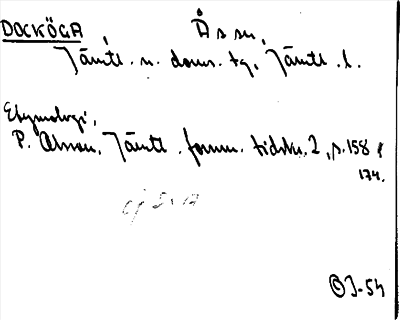 DOCKÖGA Åssn,
Jämtl. n. doms. tg, Jämtl. l.
Etymologi,
P. Olsson, Jämtl. fornm. tidskr. 2, p. 158 f
174.
J-54